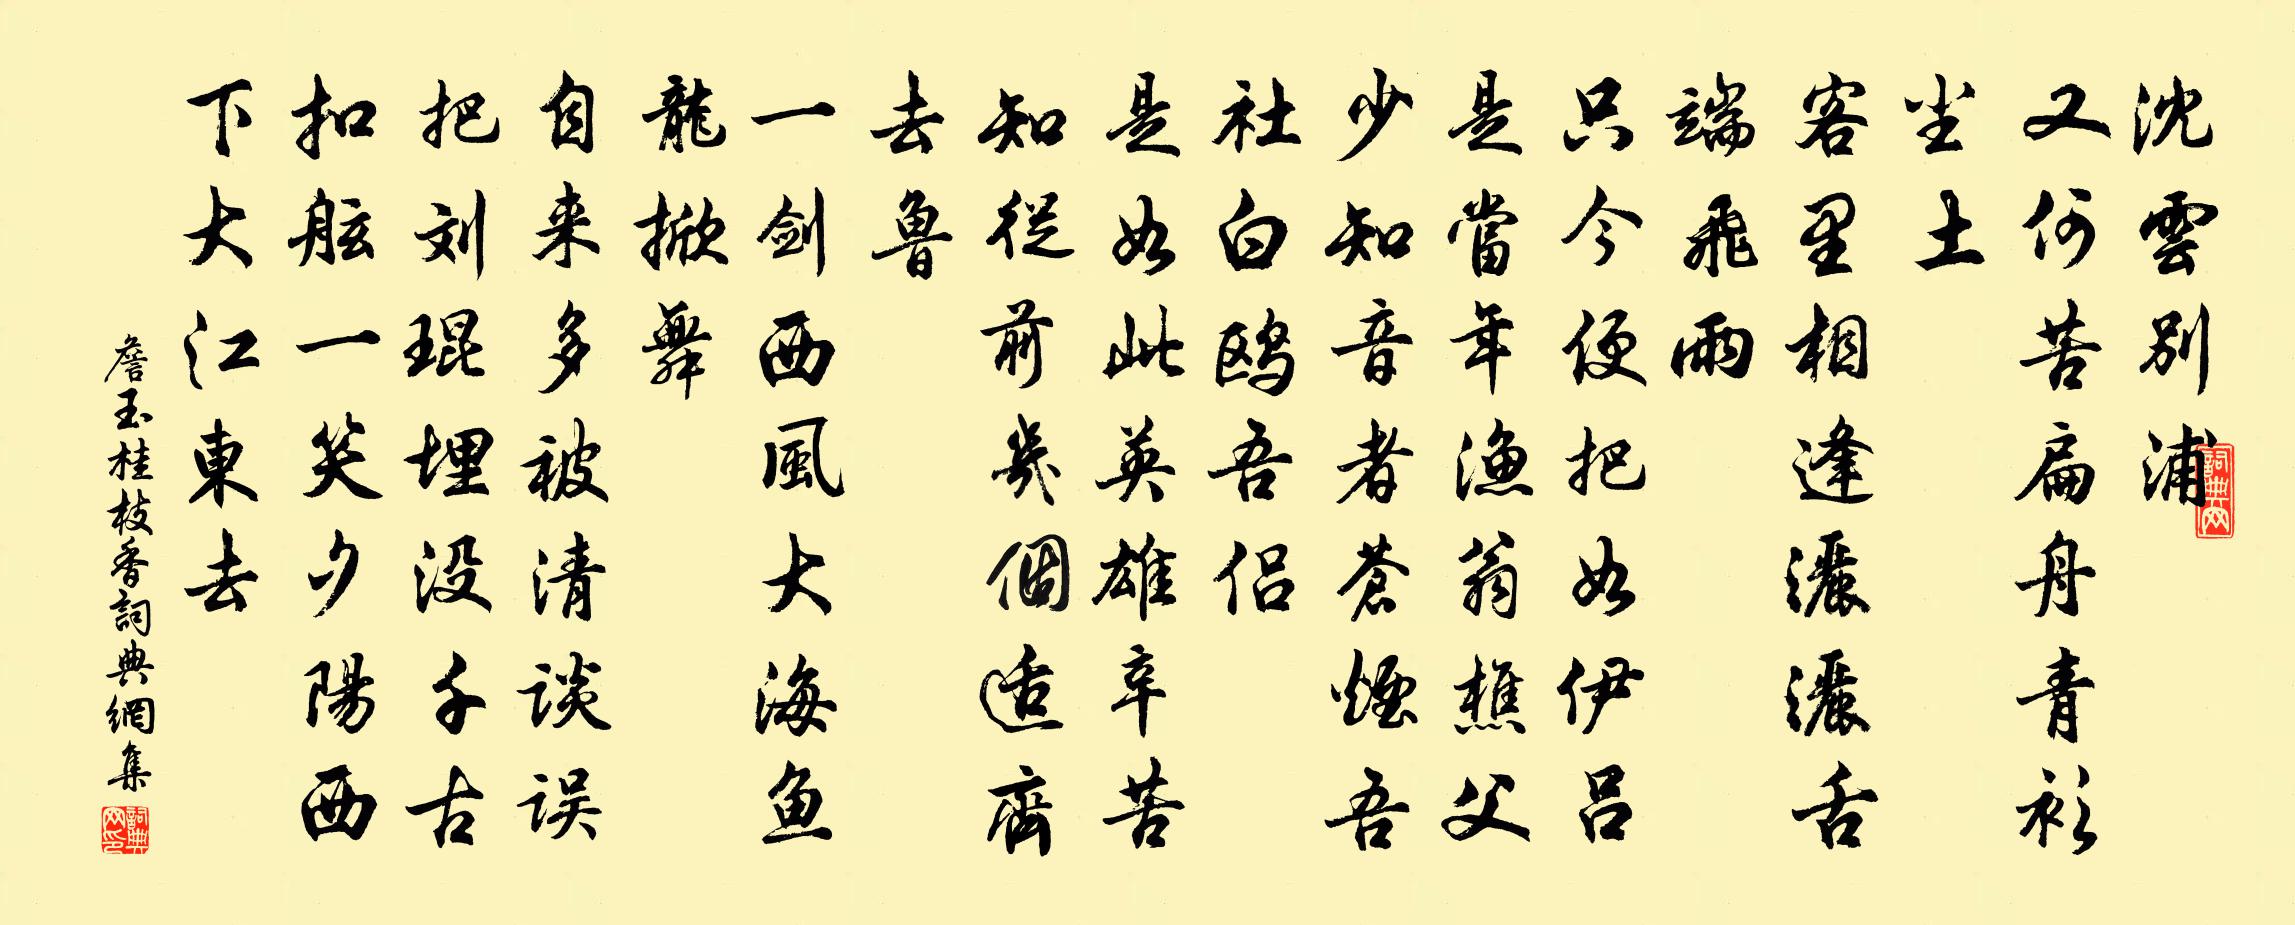 沈雲別浦
又何苦扁舟青衫
尘土
客里相逢灑灑舌
端飛雨
只今便把如伊呂
是當年漁翁樵父
少知音者蒼煙吾
社白鸥吾侣
是如此英雄辛苦
知從前幾個适齊
去魯
一剑西風大海鱼
龍掀舞
自来多被清谈误
把刘琨埋没千古
扣舷一笑夕陽西
下大江東去
詹玉桂枝香詞典網集
詞典网
詞典网印